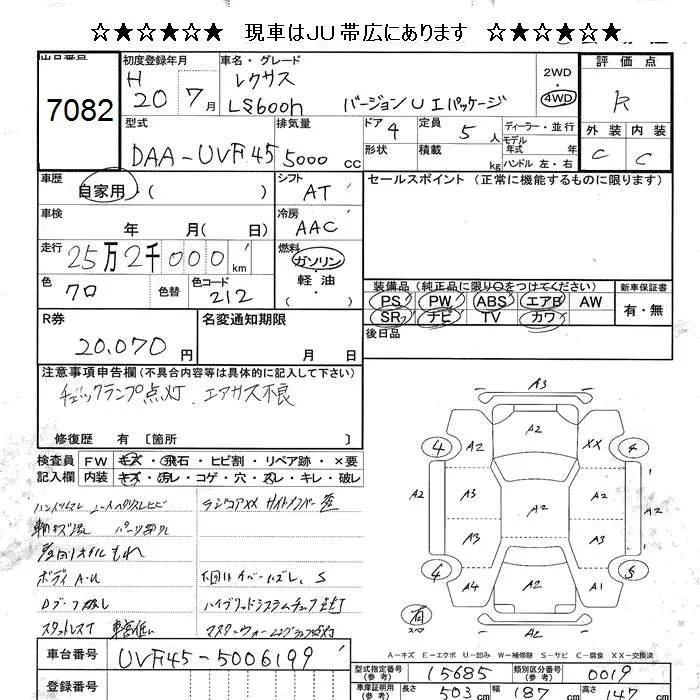 ☆★☆★☆★ 現車はJU帯広にあります ☆★☆★☆★
出品番号 7082
初度登録年月 H 20 7月
車名・グレード レクサス LS600h バージョンU Iパッケージ
2WD 4WD
評価点 R
外装 内装 C C
型式 DAA-UVF45
排気量 5000 cc
ドア 4 定員 5人
形状 積載 kg
ディーラー・並行
モデル年式 年
ハンドル 左・右
車歴 自家用・( )
シフト AT
セールスポイント (正常に機能するものに限ります)
車検 年 月( 日)
冷房 AAC
走行 25万2千000km
燃料 ガソリン・軽油 ( )
色 クロ 色替 色コード 212
装備品(純正品に限り○をつけてください) 新車保証書
PS PW ABS エアB AW 有・無
SR ナビ TV カワ
R券 20,070円
名変通知期限 月 日
後日品
注意事項申告欄(不具合内容等は具体的に記入して下さい)
チェックランプ点灯、エアサス不良
修復歴 有 [箇所 ]
検査員 FW キズ・飛石・ヒビ割・リペア跡・×要
記入欄 内装 キズ・汚レ・コゲ・穴・スレ・キレ・破レ
ボディ A・U
ハイブリッドシステムチェック点灯
スタットレスT 車高低い
車台番号 UVF45-5006199
登録番号
A3
4 A2 A2 XX 4
A2 A3 A2 A3 A2
A3 A3
4 A4 A2 A1 5
有 スペア A2
A-キズ E-エクボ U-凹み W-補修跡 S-サビ C-腐食 XX-交換済
型式指定番号(参考) 15685 類別区分番号(参考) 0019
車庫証明用(参考) 長さ 503 cm 幅 187 cm 高さ cm